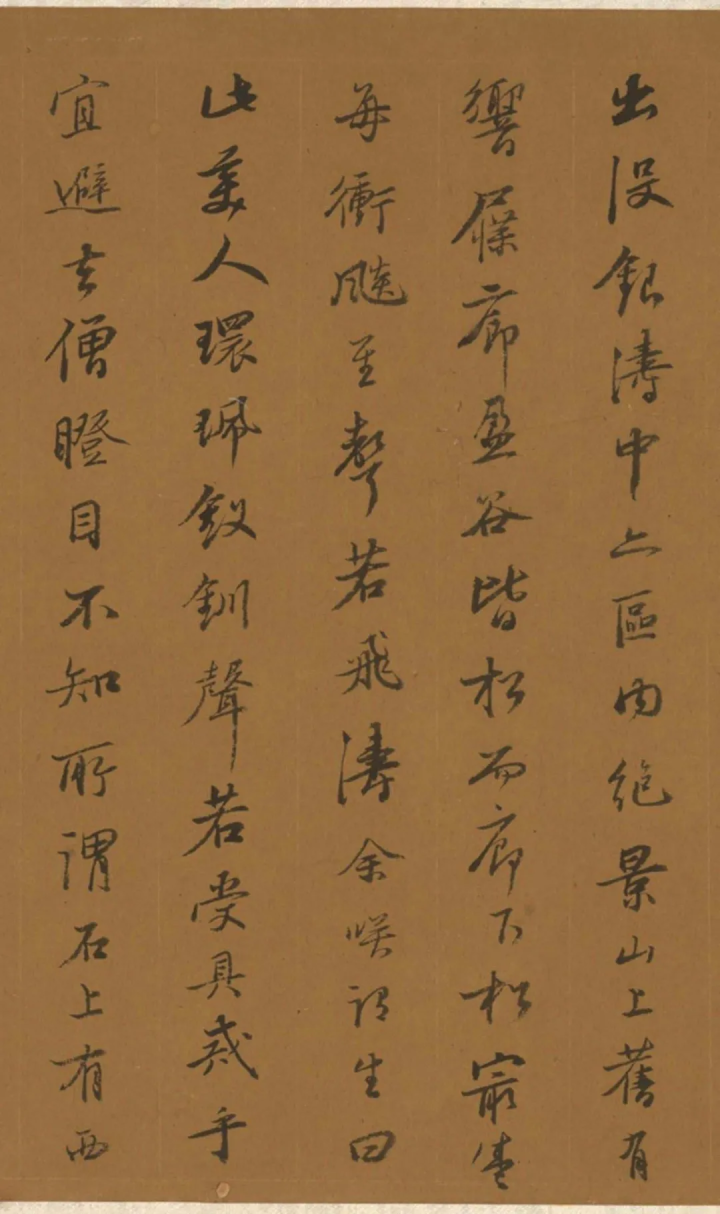 出没銀濤中亦區内絕景山上舊有
響屧廊盈谷皆松而廊下松最盛
每衝飈至聲若飛濤余咲謂生曰
此美人環珮釵釧聲若受具戒乎
宜避去僧瞪目不知所謂石上有西